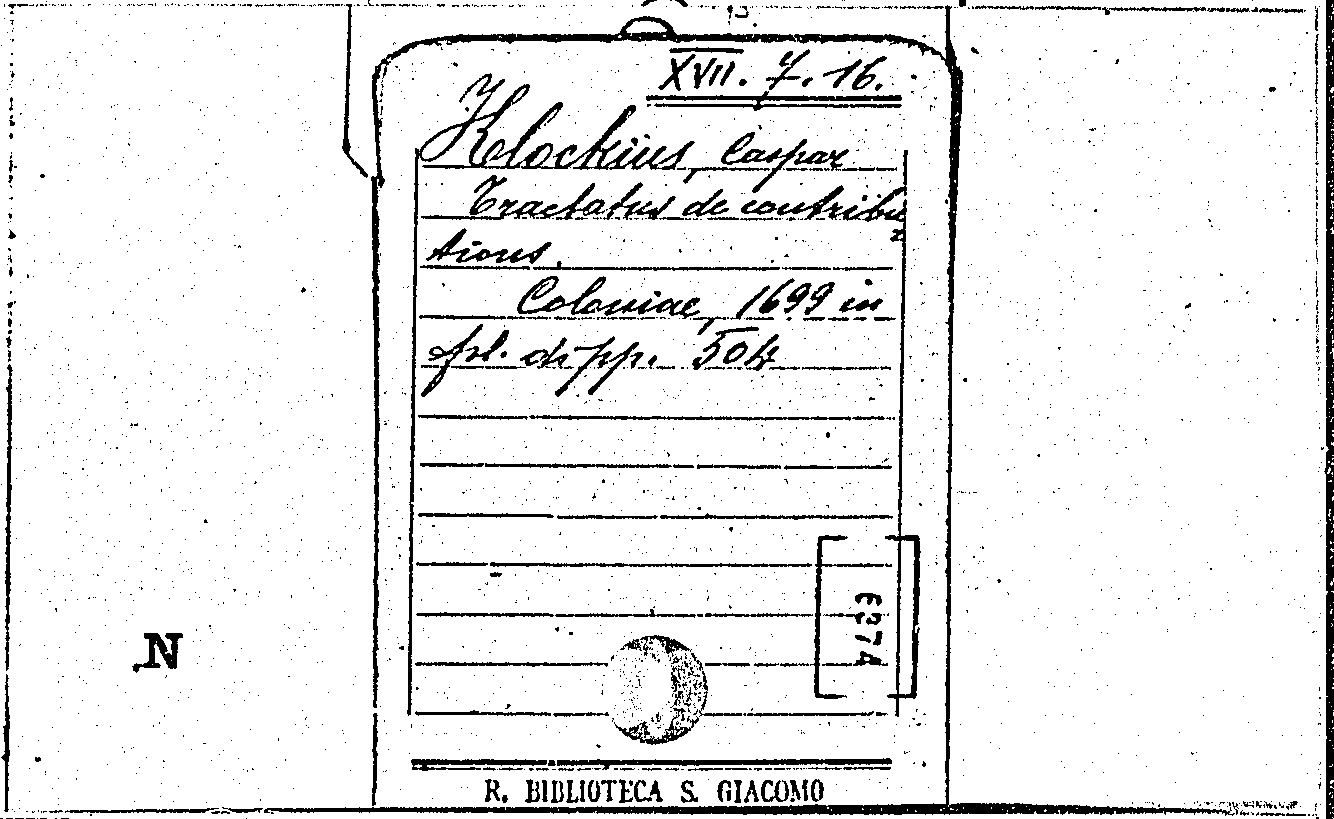 XVII. 7. 16.
Klockius, Caspar
Tractatus de contribu
tions.
Coloniae, 1699 in
fol. di pp. 504
6374
N
R. BIBLIOTECA S. GIACOMO